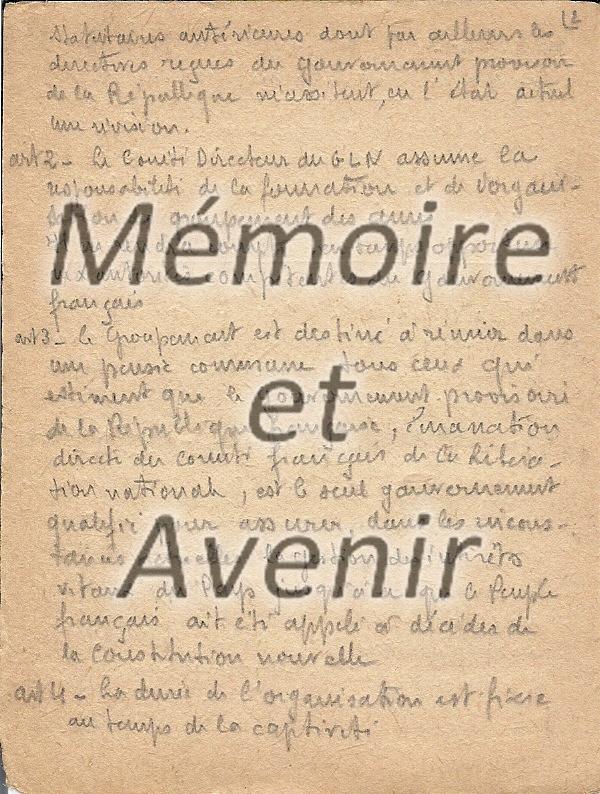 12
statutaires antérieures dont par ailleurs les
directives reçues du gouvernement provisoire
de la République nécessitent, en l'état actuel
une révision.
art 2 - Le Comité Directeur du GLN assume la
responsabilité de la formation et de l'organi-
du groupement des
Mémoire
compte en temps opportun
aux autorités compétentes du gouvernement
français
art 3 - Le Groupement est destiné à réunir dans
une pensée commune tous ceux qui
estiment que le gouvernement provisoire
et
de la République française, émanation
directe du comité français de la Libéra-
tion nationale, est le seul gouvernement
qualifié pour assurer, dans les circons-
Avenir
tances actuelles la gestion des intérêts
vitaux du Pays jusqu'à ce que le Peuple
français ait été appelé à décider de
la Constitution nouvelle
art 4 - La durée de l'organisation est fixée
au temps de la captivité